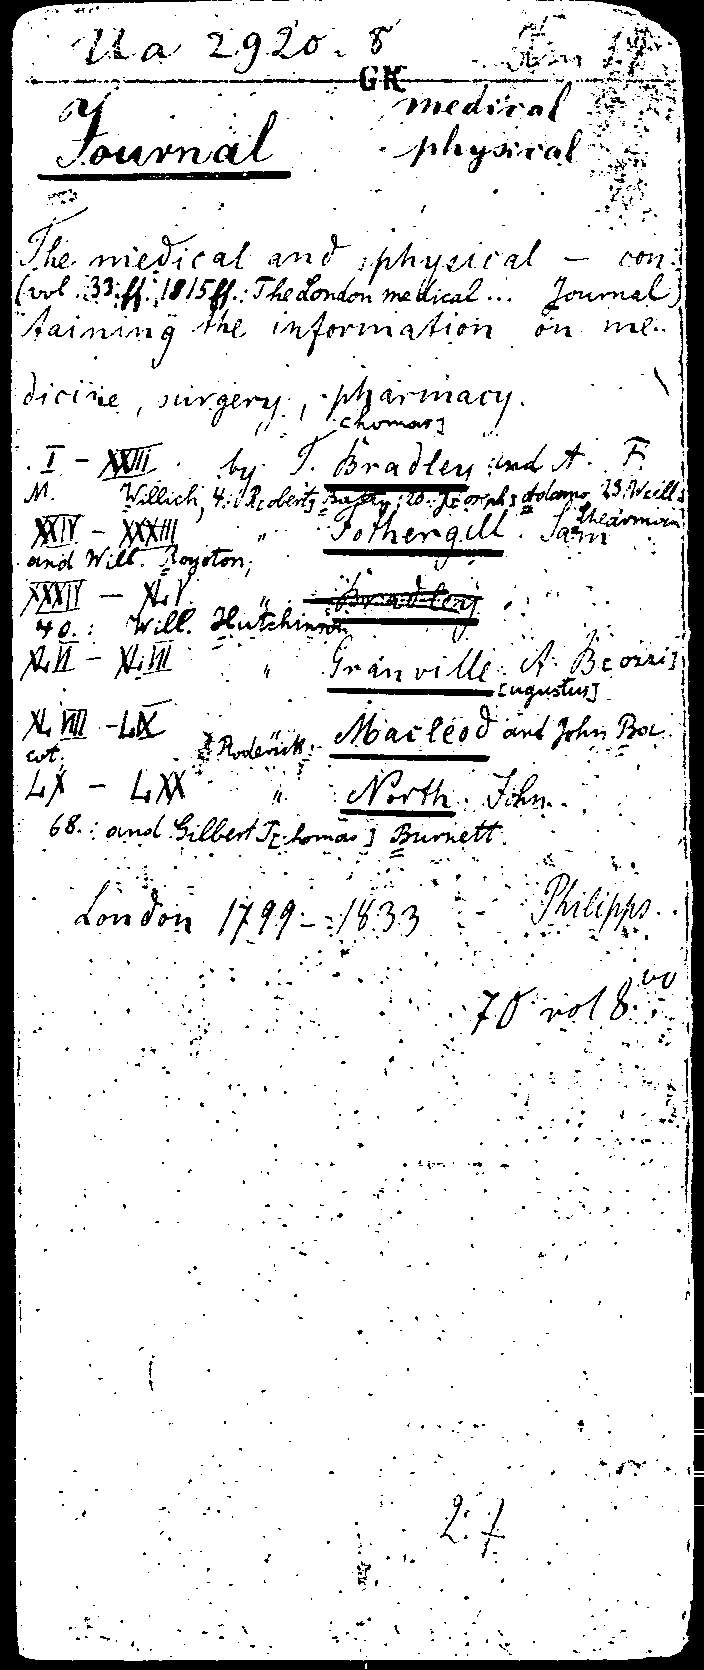 Ua 2920. 8
GK
Journal medical
physical
The medical and physical – con-
(vol. 33.ff. 1815ff.: The London medical... Journal)
taining the information on me-
dicine, surgery, pharmacy.
[homas]
I – XXIII by T. Bradley and A. F.
M. Willich, 4.: R[obert] Batty; 20. J[oseph] Adams, 23. Will
XXIV – XXXIII " Fothergill. Sam
and Will. Royston;
XXXIV – XLV " Bradley
40.: Will. Hutchinson
XLVI – XLVII " Granville A. B[ozzi]
[ugustus]
XLVIII – LIX Roderick Macleod and John Bac
cot.
LX – LXX " North. John.
68.: and Gilbert T[homas] Burnett.
London 1799 – 1833 Philipps.
70 vol 8.vo
27